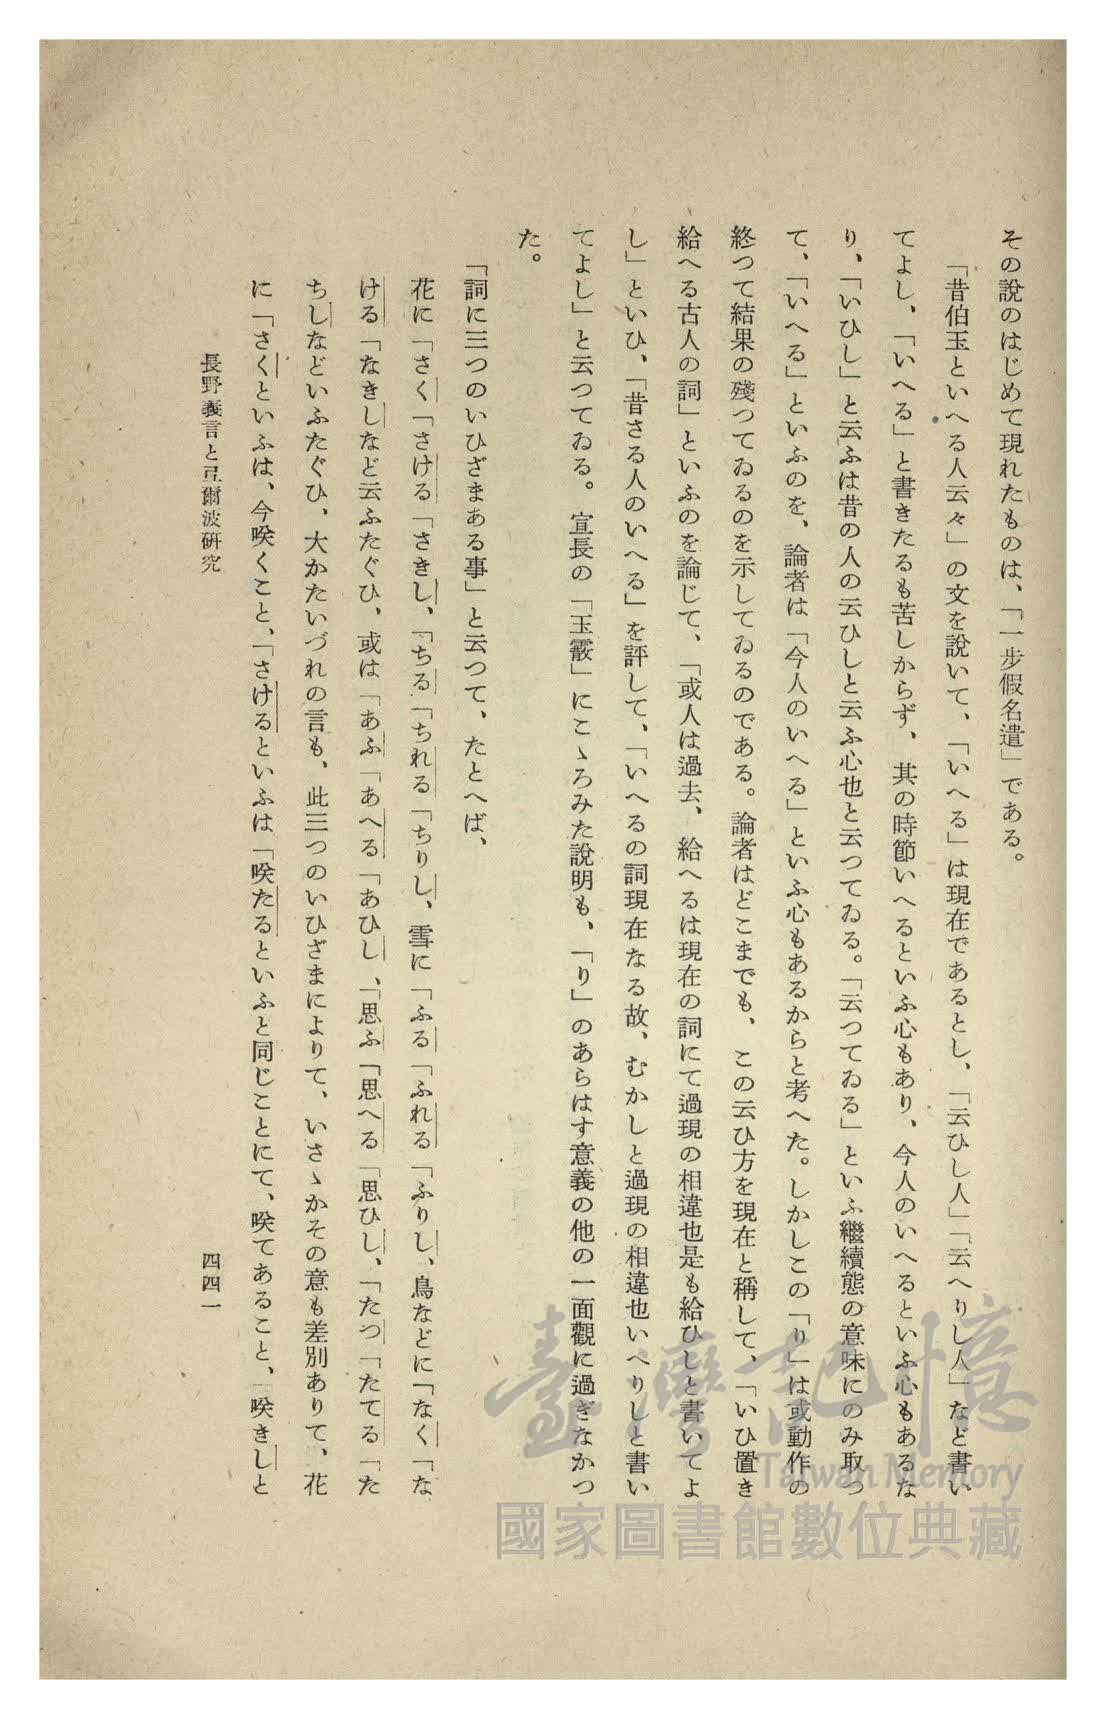 その說のはじめて現れたものは、「一步假名遣」である。
「昔伯玉といへる人云々」の文を說いて、「いへる」は現在であるとし、「云ひし人」「云へりし人」など書い
てよし、「いへる」と書きたるも苦しからず、其の時節いへるといふ心もあり、今人のいへるといふ心もあるな
り、「いひし」と云ふは昔の人の云ひしと云ふ心也と云つてゐる。「云つてゐる」といふ繼續態の意味にのみ取つ
て、「いへる」といふのを、論者は「今人のいへる」といふ心もあるからと考へた。しかしこの「り」は或動作の
終つて結果の殘つてゐるのを示してゐるのである。論者はどこまでも、この云ひ方を現在と稱して、「いひ置き
給へる古人の詞」といふのを論じて、「或人は過去、給へるは現在の詞にて過現の相違也是も給ひしと書いてよ
し」といひ、「昔さる人のいへる」を評して、「いへるの詞現在なる故、むかしと過現の相違也いへりしと書い
てよし」と云つてゐる。宣長の「玉霰」にこゝろみた說明も、「り」のあらはす意義の他の一面觀に過ぎなかつ
た。
「詞に三つのいひざまある事」と云つて、たとへば、
花に「さく「さける「さきし、「ちる「ちれる「ちりし、雪に「ふる「ふれる「ふりし、鳥などに「なく「な
ける「なきしなど云ふたぐひ、或は「あふ「あへる「あひし、「思ふ「思へる「思ひし、「たつ「たてる「た
ちしなどいふたぐひ、大かたいづれの言も、此三つのいひざまによりて、いさゝかその意も差別ありて、花
に「さくといふは、今咲くこと、「さけるといふは「咲たるといふと同じことにて、咲てあること、「咲きしと
長野義言と弖爾波硏究
四四一
臺灣記憶
Taiwan Memory
國家圖書館數位典藏